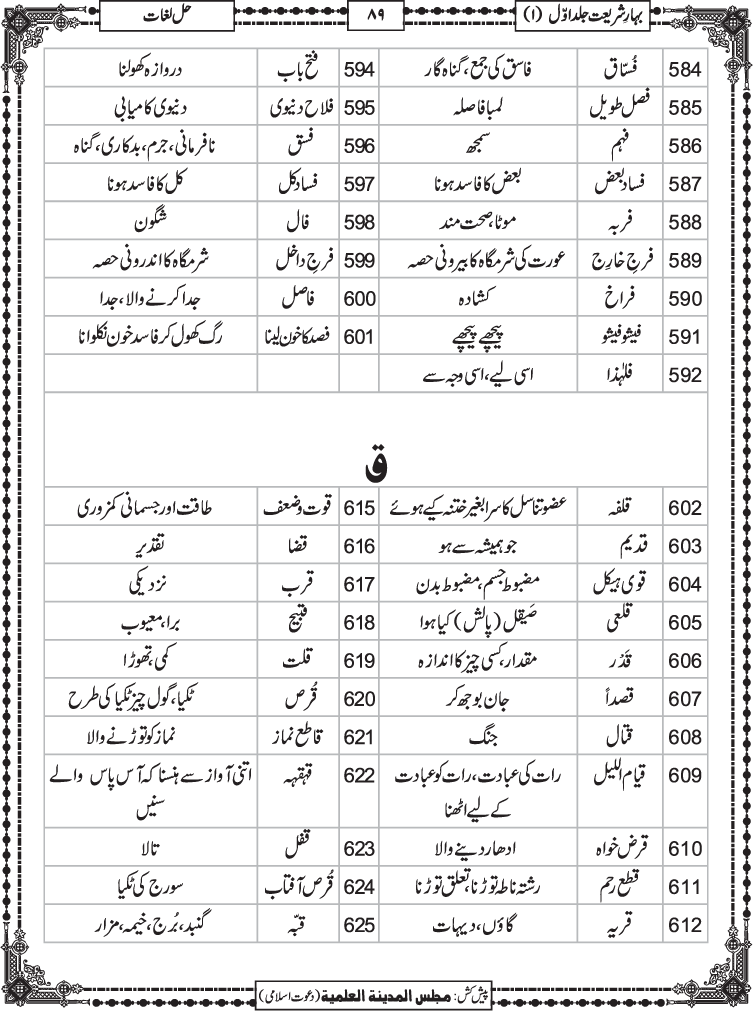 بہارِ شریعت جلد اوّل (۱)
۸۹
حل لغات
584 فُسّاق فاسق کی جمع، گناہ گار 594 فتح باب دروازہ کھولنا
585 فصل طویل لمبا فاصلہ 595 فلاح دنیوی دنیوی کامیابی
586 فہم سمجھ 596 فسق نافرمانی، جرم، بدکاری، گناہ
587 فساد بعض بعض کا فاسد ہونا 597 فساد کل کل کا فاسد ہونا
588 فربہ موٹا، صحت مند 598 فال شگون
589 فرجِ خارِج عورت کی شرمگاہ کا بیرونی حصہ 599 فرجِ داخل شرمگاہ کا اندرونی حصہ
590 فراخ کشادہ 600 فاصل جدا کرنے والا، جدا
591 فیشو فیشو پیچھے پیچھے 601 فصد کا خون لینا رگ کھول کر فاسد خون نکلوانا
592 فلہٰذا اسی لیے، اسی وجہ سے
ق
602 قلفہ عضو تناسل کا سرا بغیر ختنہ کیے ہوئے 615 قوت وضعف طاقت اور جسمانی کمزوری
603 قدیم جو ہمیشہ سے ہو 616 قضا تقدیر
604 قوی ہیکل مضبوط جسم، مضبوط بدن 617 قرب نزدیکی
605 قلعی صَیقل (پالش) کیا ہوا 618 قبیح برا، معیوب
606 قَدْر مقدار، کسی چیز کا اندازہ 619 قلت کمی، تھوڑا
607 قصداً جان بوجھ کر 620 قُرص ٹکیا، گول چیز ٹکیا کی طرح
608 قتال جنگ 621 قاطع نماز نماز کو توڑنے والا
609 قیام اللیل رات کی عبادت، رات کو عبادت 622 قہقہہ اتنی آواز سے ہنسنا کہ آس پاس والے
کے لیے اٹھنا سنیں
610 قرض خواہ ادھار دینے والا 623 قفل تالا
611 قطع رحم رشتہ ناطہ توڑنا، تعلق توڑنا 624 قُرص آفتاب سورج کی ٹکیا
612 قریہ گاؤں، دیہات 625 قبّہ گنبد، بُرج، خیمہ، مزار
پیش کش: مجلس المدینۃ العلمیۃ (دعوت اسلامی)